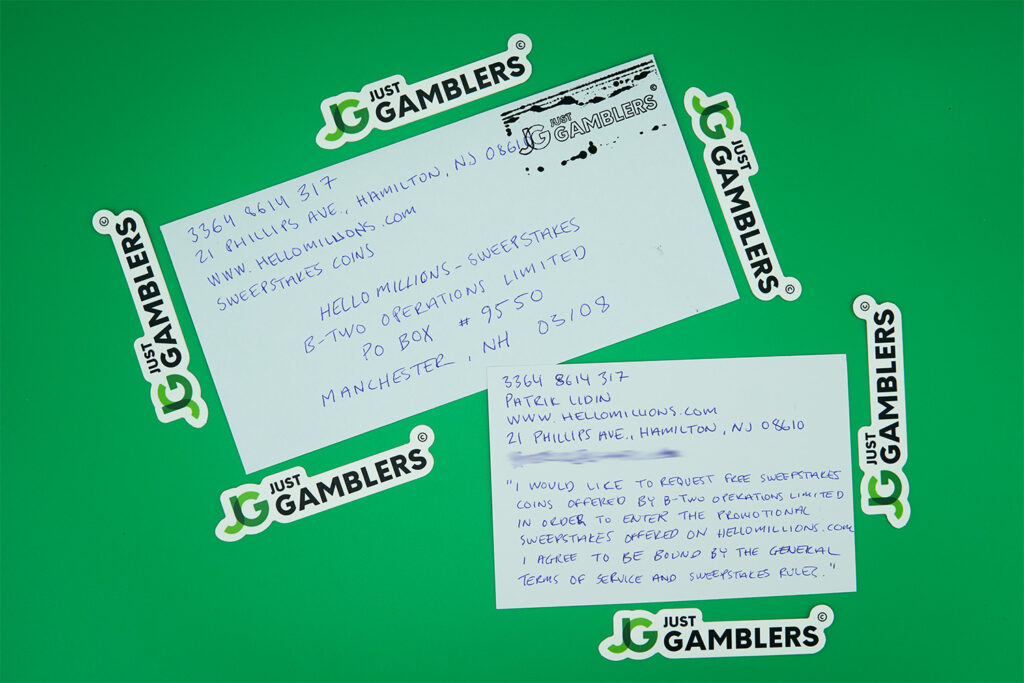 JUST
GAMBLERS
JG JUST
GAMBLERS
3364 8614 317
21 PHILLIPS AVE., HAMILTON, NJ 08610
WWW.HELLOMILLIONS.COM
SWEEPSTAKES COINS
HELLO MILLIONS - SWEEPSTAKES
B-TWO OPERATIONS LIMITED
PO BOX # 9550
MANCHESTER, NH 03108
JUST
GAMBLERS
JUST
GAMBLERS
3364 8614 317
PATRIK LIDIN
WWW.HELLOMILLIONS.COM
21 PHILLIPS AVE., HAMILTON, NJ 08610
"I WOULD LIKE TO REQUEST FREE SWEEPSTAKES
COINS OFFERED BY B-TWO OPERATIONS LIMITED
IN ORDER TO ENTER THE PROMOTIONAL
SWEEPSTAKES OFFERED ON HELLOMILLIONS.COM
I AGREE TO BE BOUND BY THE GENERAL
TERMS OF SERVICE AND SWEEPSTAKES RULES."
JUST
GAMBLERS
JUST
GAMBLERS
JUST
GAMBLERS